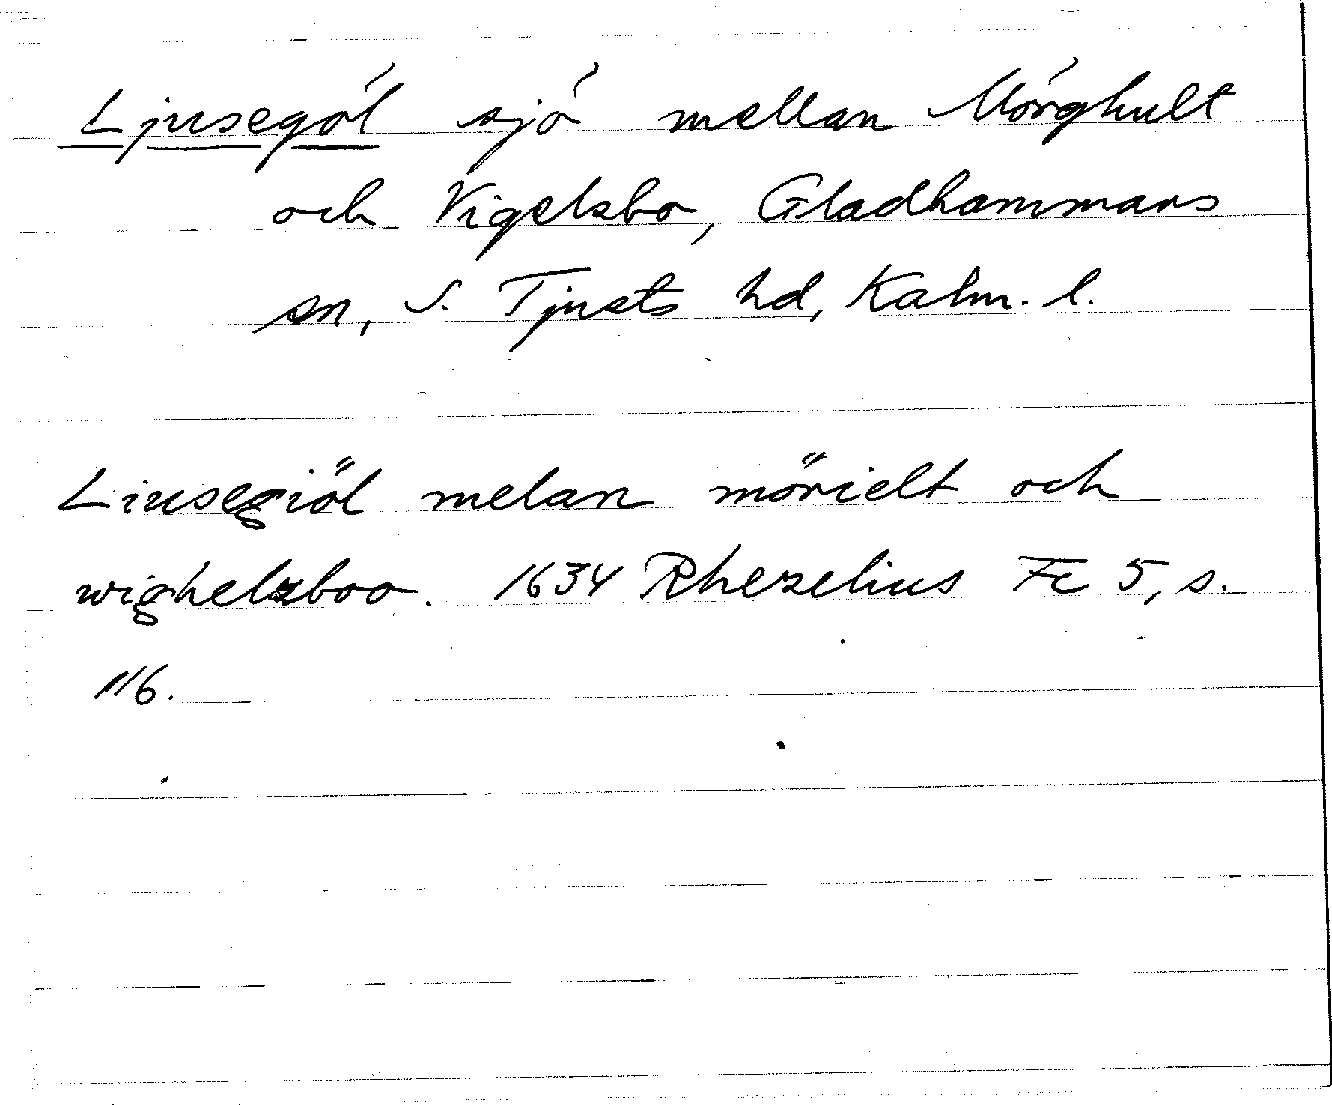 Ljusegöl sjö mellan Mörghult
och Vigelsbo, Gladhammars
sn, S. Tjusts hd, Kalm. l.
Liusegiöl melan mörielt och
wighelzboo. 1634 Rhezelius Fc 5, s.
116.